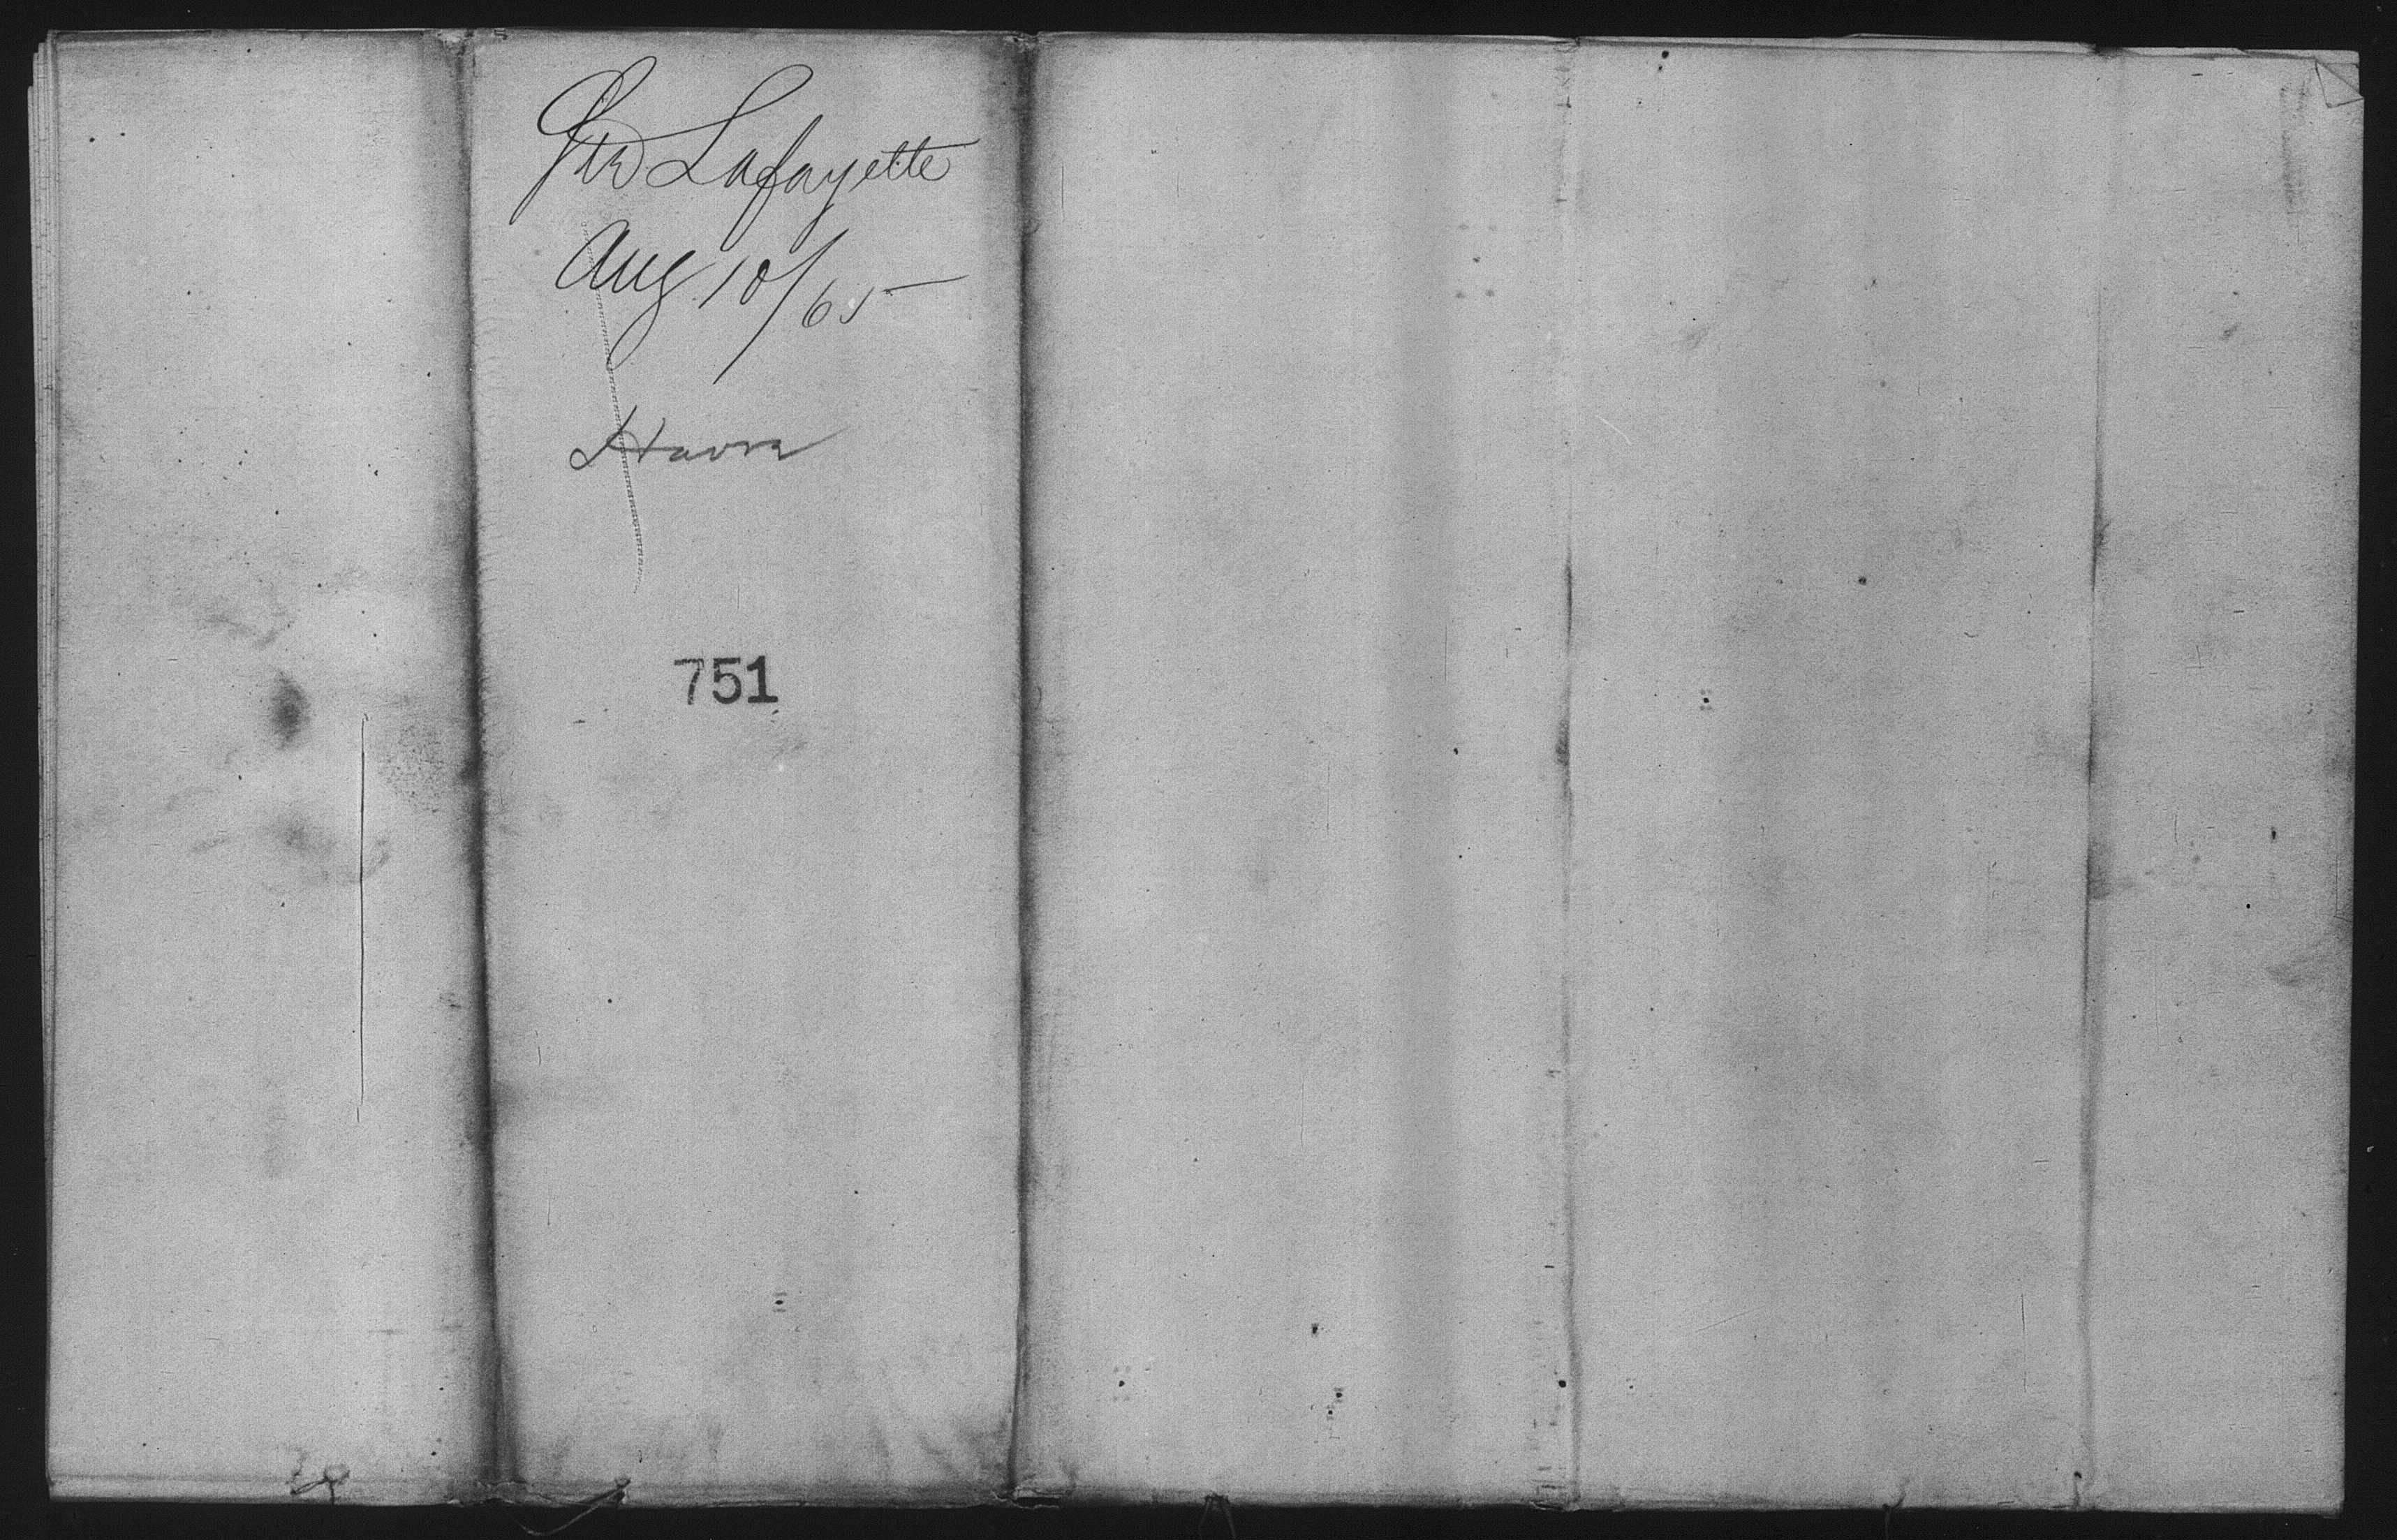 Str Lafayette
Aug 10/65
Havre
751